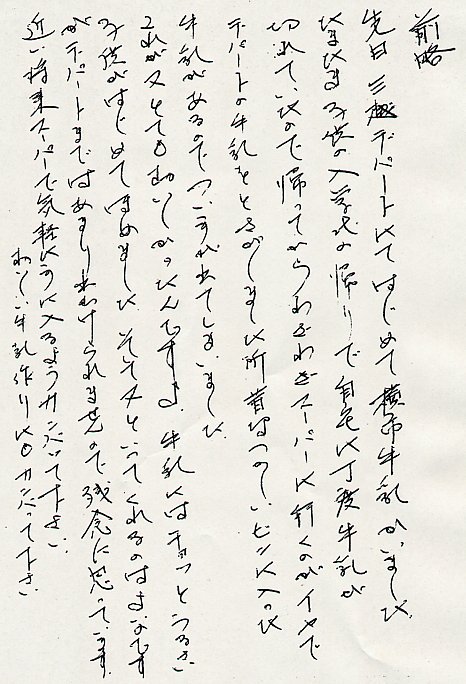 前略
先日三越デパートにてはじめて横市牛乳かいました。
たまたま子供の入学式の帰りで自宅に丁度牛乳が
切れていたので帰ってからわざわざスーパーに行くのがイヤで
デパートの牛乳をとさがしました所昔なつかしいビンに入った
牛乳があるのでついひかれてしまいました。
これが又とてもおいしかったんですよ。牛乳にはチョッとうるさい
子供がはじめてほめました そして又といってくれるのはよいのです
がデパートまではあまりでかけられませんので残念に思っています。
近い将来スーパーで気軽に手に入るようガンバって下さい。
おいしい牛乳作りにもガンバって下さい